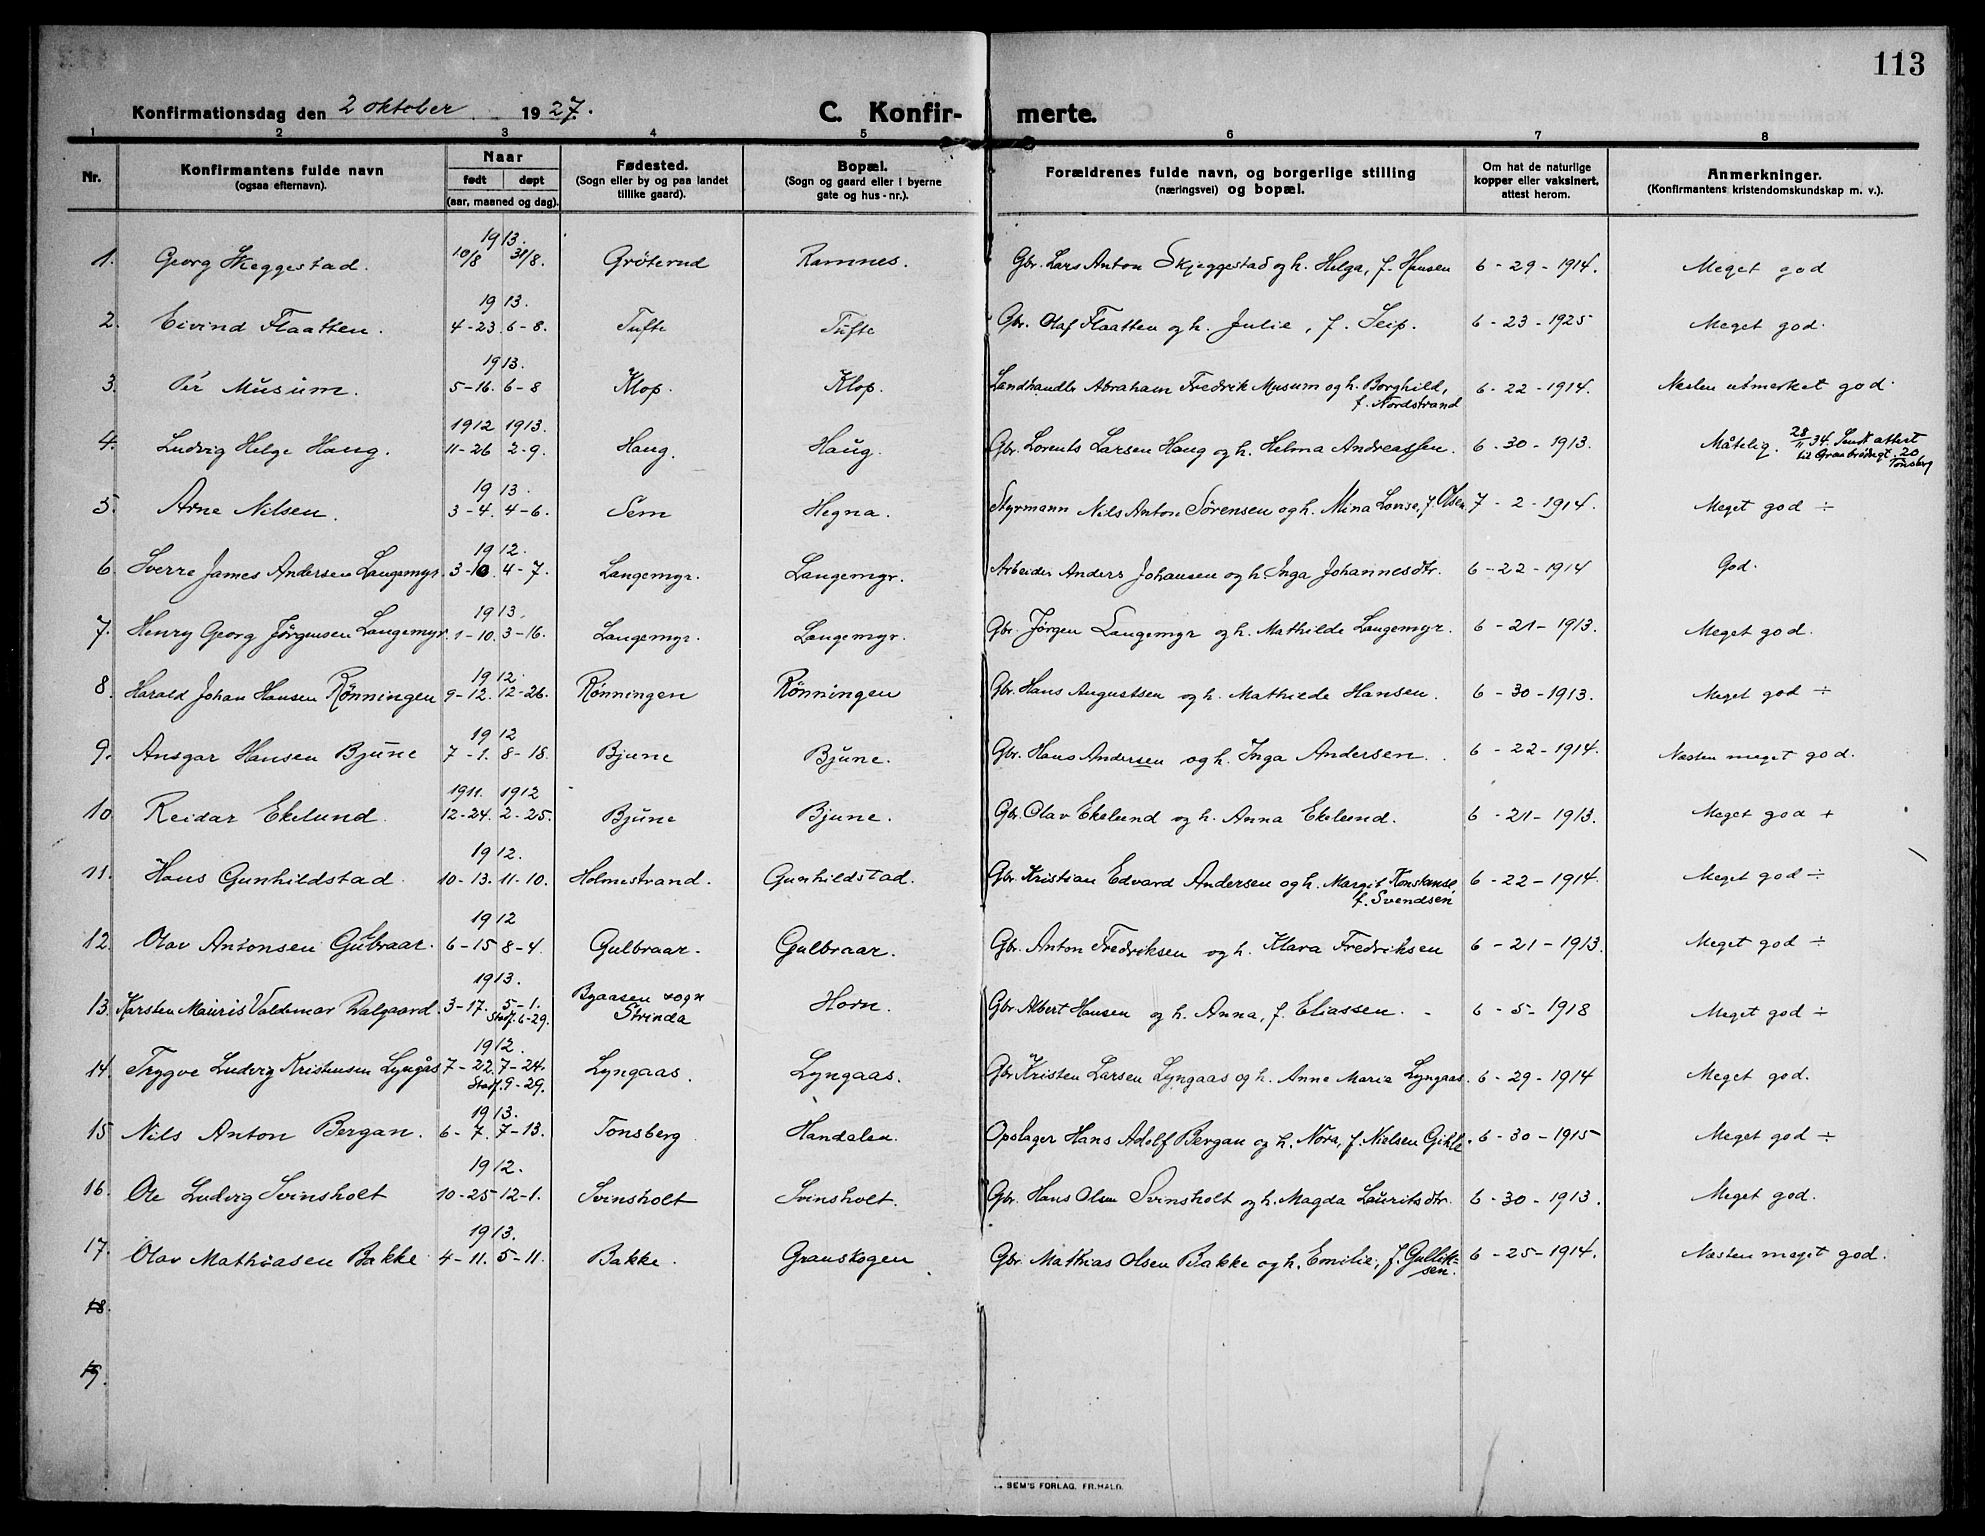 113
Konfirmationsdag den 2 oktober 1927.
C. Konfir- merte.
1 2 3 4 5 6 7 8
Nr.
Konfirmantens fulde navn
(ogsaa efternavn).
Naar
født døpt
(aar, maaned og dag).
Fødested.
(Sogn eller by og paa landet
tillike gaard).
Bopæl.
(Sogn og gaard eller i byerne
gate og hus-nr.).
Forældrenes fulde navn, og borgerlige stilling
(næringsvei) og bopæl.
Om hat de naturlige
kopper eller vaksinert,
attest herom.
Anmerkninger.
(Konfirmantens kristendomskundskap m. v.).
1913.
1. Georg Skeggestad. 10/8 31/8. Grøterud Ramnes. Gbr. Lars Anton Skjeggestad og h. Helga, f. Hansen 6-29-1914. Meget god
1913.
2. Eivind Flaatten. 4-23. 6-8. Tufte Tufte Gbr. Olaf Flaatten og h. Julie, f. Seip. 6-23-1925 Meget god.
1913.
3. Per Musum. 5-16. 6-8 Klop. Klop. Landhandler Abraham Fredrik Musum og h. Borghild, 6-22-1914. Næsten utmerket god.
f. Nordstrand
1912 1913.
4. Ludvig Helge Haug. 11-26 2-9. Haug. Haug. Gbr. Lorents Larsen Haug og h. Helma Andreassen. 6-30-1913. Måtelig. 28/11 34. Sendt attest
til Graabrødregt. 20
Tønsberg
1913.
5. Arne Nilsen. 3-4. 4-6. Sem Hegna. Styrmann Nils Anton Sørensen og h. Mina Lovise, f. Olsen 7-2-1914. Meget god ÷
1912.
6. Sverre James Andersen Langemyr. 3-10. 4-7. Langemyr. Langemyr. Arbeider Anders Johansen og h. Inga Johannesdtr. 6-22-1914 God.
1913.
7. Henry Georg Jørgensen Langemyr. 1-10. 3-16. Langemyr. Langemyr. Gbr. Jørgen Langemyr og h. Mathilde Langemyr. 6-21-1913. Meget god.
1912.
8. Harald Johan Hansen Rønningen 9-12. 12-26. Rønningen Rønningen Gbr. Hans Augustsen og h. Mathilde Hansen. 6-30-1913. Meget god ÷
1912
9. Ansgar Hansen Bjune 7-1. 8-18. Bjune Bjune. Gbr. Hans Andersen og h. Inga Andersen. 6-22-1914. Næsten meget god.
1911. 1912
10 Reidar Ekelund. 12-24. 2-25. Bjune Bjune. Gbr. Olav Ekelund og h. Anna Ekelund. 6-21-1913. Meget god +
1912.
11. Hans Gunhildstad. 10-13. 11-10. Holmestrand. Gunhildstad. Gbr. Kristian Edvard Andersen og h. Margit Konstanse, 6-22-1914. Meget god ÷
f. Svendsen
1912
12. Olav Antonsen Gulbraar. 6-15 8-4. Gulbraar. Gulbraar. Gbr. Anton Fredriksen og h. Klara Fredriksen 6-21-1913. Meget god ÷
1913.
13. Karsten Mauris Valdemar Dalgaard. 3-17. 5-1. Byaasen sogn Horn. Gbr. Albert Hansen og h. Anna, f. Eliassen. 6-5-1918 Meget god ÷
Stadf. 6-29. Strinda
1912.
14. Trygve Ludvig Kristensen Lyngås 7-22. 7-24. Lyngaas. Lyngaas. Gbr. Kristen Larsen Lyngaas og h. Anne Marie Lyngaas. 6-29-1914 Meget god.
Stadf. 9-29.
1913.
15 Nils Anton Bergan. 6-7. 7-13. Tønsberg Handalen. Opslager Hans Adolf Bergan og h. Nora, f. Nielsen Gihle. 6-30-1915 Meget god ÷
1912.
16. Ole Ludvig Svinsholt 10-25 12-1. Svinsholt Svinsholt. Gbr. Hans Olsen Svinsholt og h. Magda Lauritsdtr. 6-30-1913. Meget god.
1913.
17. Olav Mathiasen Bakke 4-11. 5-11. Bakke. Granskogen Gbr. Mathias Olsen Bakke og h. Emilie, f. Gullik- 6-25-1914. Næsten meget god.
sen.
18.
19.
SEM'S FORLAG, FR.HALD.